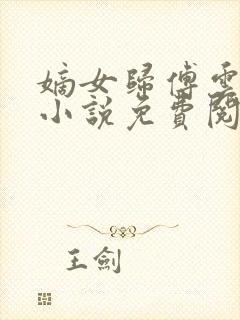 嫡女歸傅雲
小說免費閱
王劍